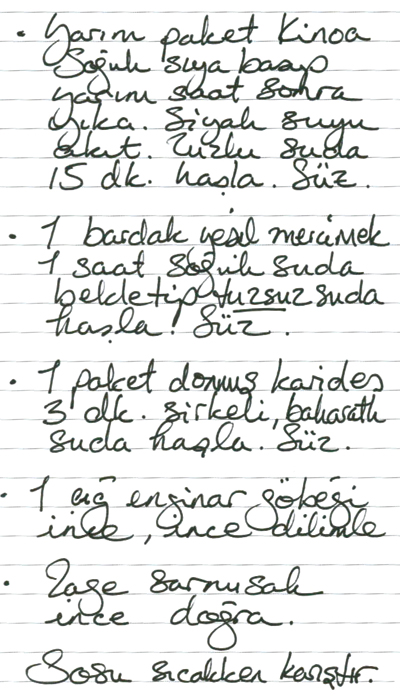 • Yarım paket Kinoa
Soğuk suya basıp
yarım saat sonra
yıka. Siyah suyu
akıt. Tuzlu suda
15 dk. haşla. Süz.
• 1 bardak yeşil mercimek
1 saat soğuk suda
bekletip tuzsuz suda
haşla! Süz.
• 1 paket donmuş karides
3 dk. sirkeli, baharatlı
suda haşla. Süz.
• 1 çiğ enginar göbeği
ince, ince dilimle
• Taze sarmısak
ince doğra.
Sosu sıcakken karıştır.